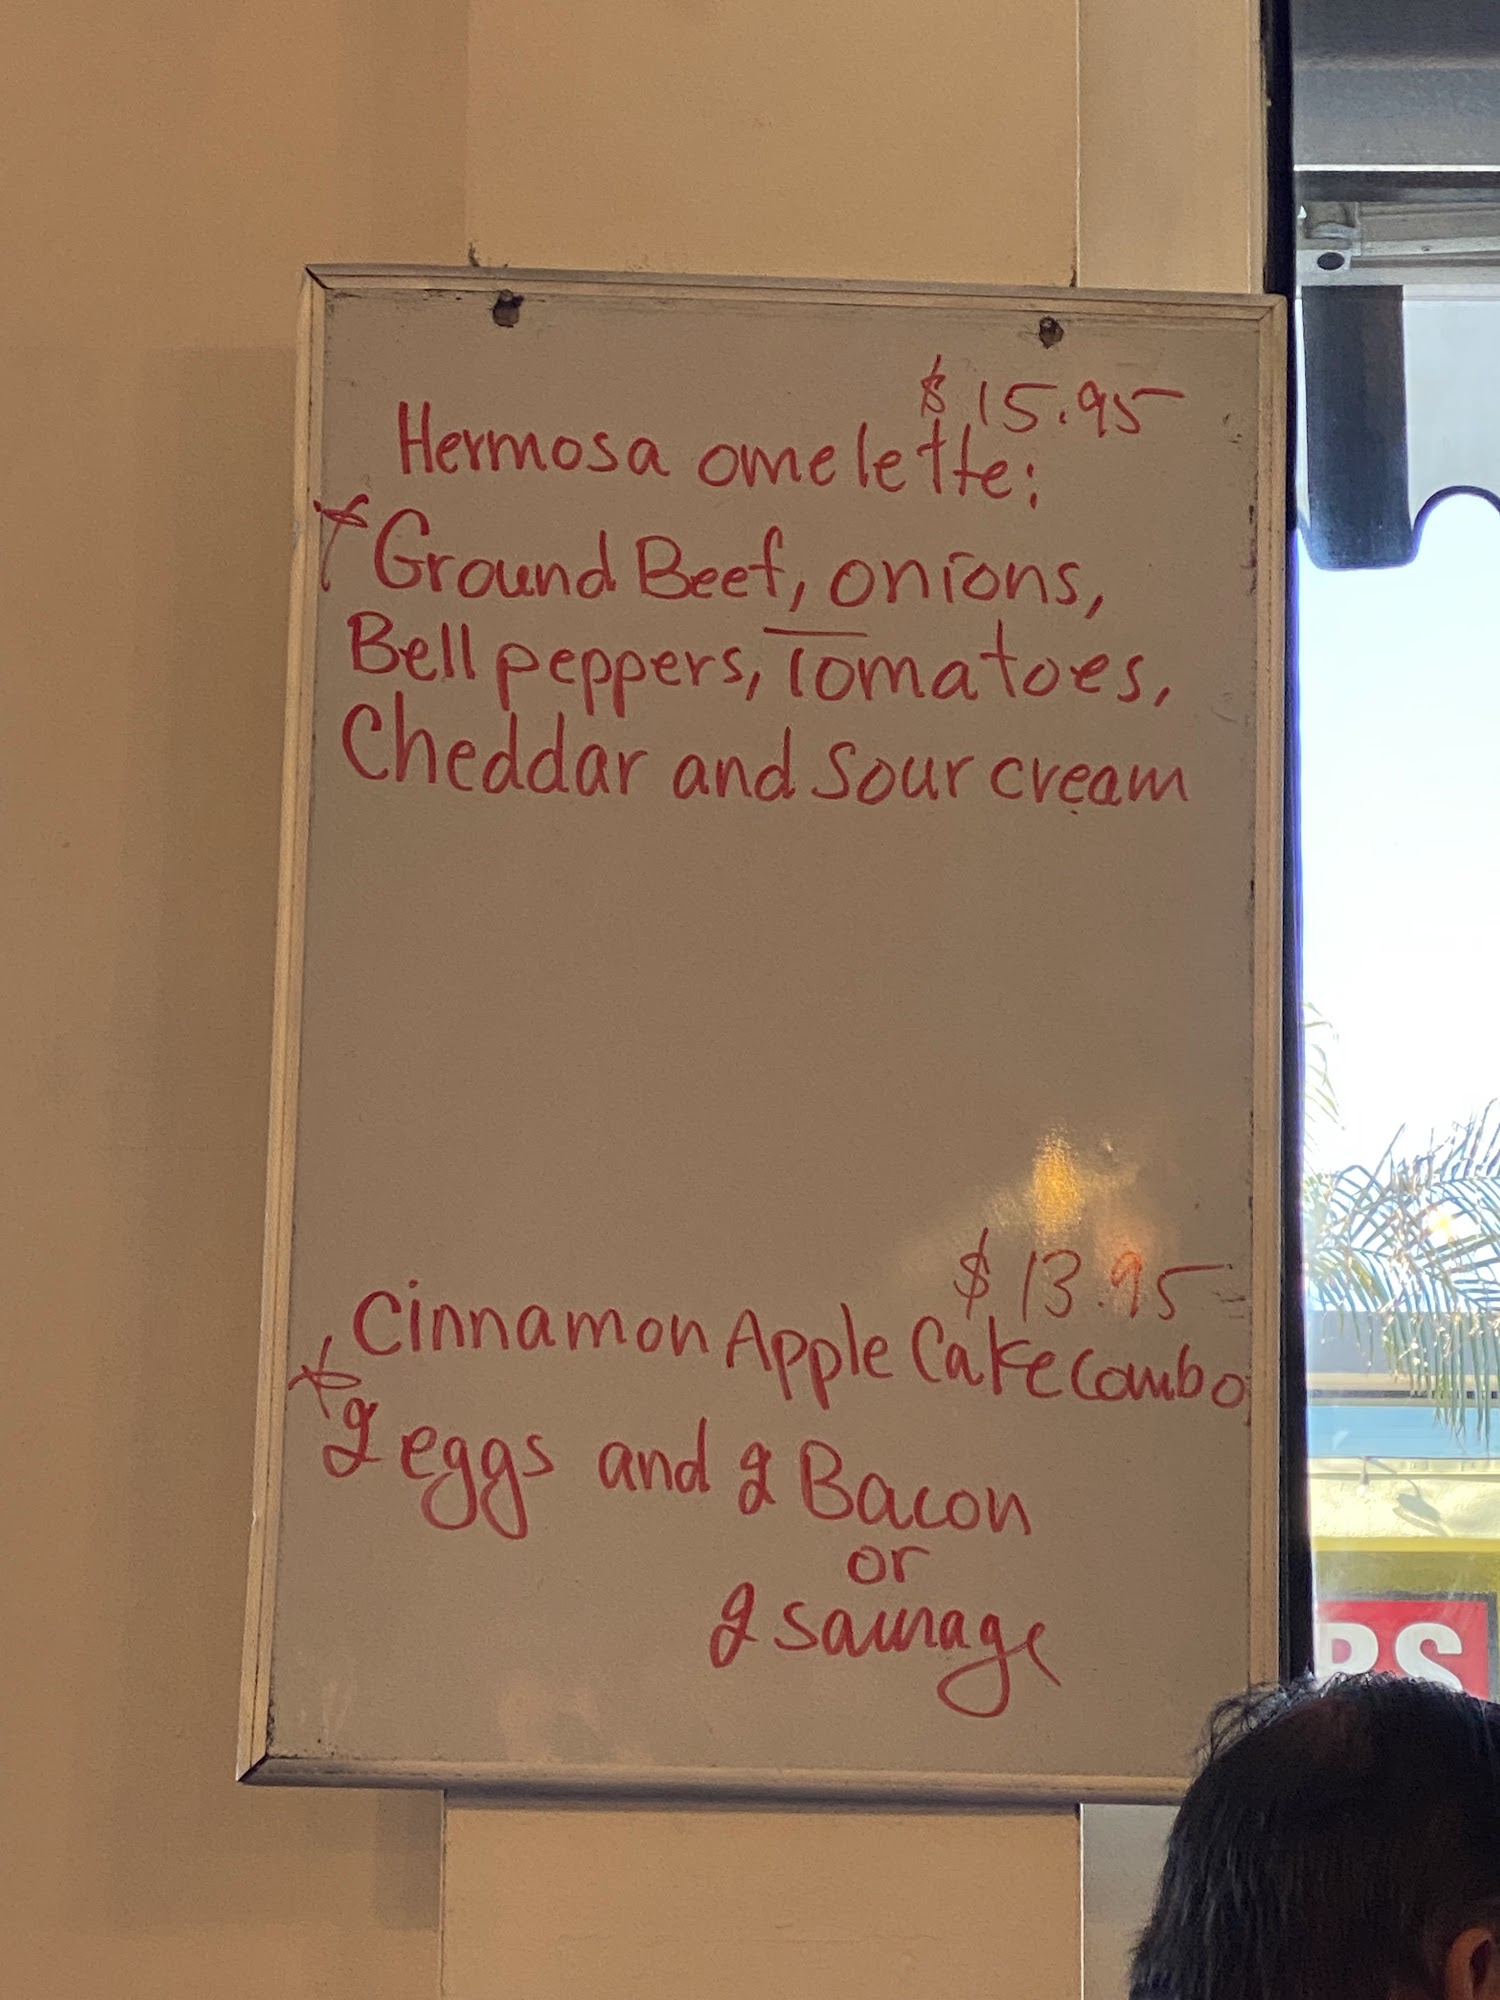 $15.95
Hermosa omelette:
*Ground Beef, onions,
Bell peppers, Tomatoes,
Cheddar and sour cream
$13.95
Cinnamon Apple Cake combo
*2 eggs and 2 Bacon
or
2 sausage
RS